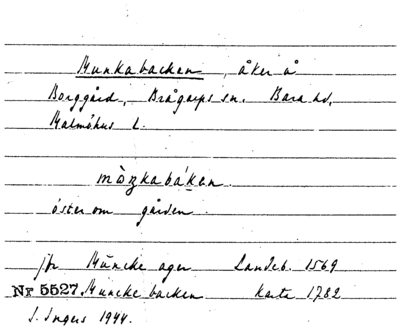 Munkabacken, åker å
Borggård, Brågarps sn. Bara hd,
Malmöhus L.
mòŋkabákan
öster om gården.
jfr Muncke ager Landeb. 1569
Nr 5527 Muncke backen karta 1782
I. Ingers 1944.